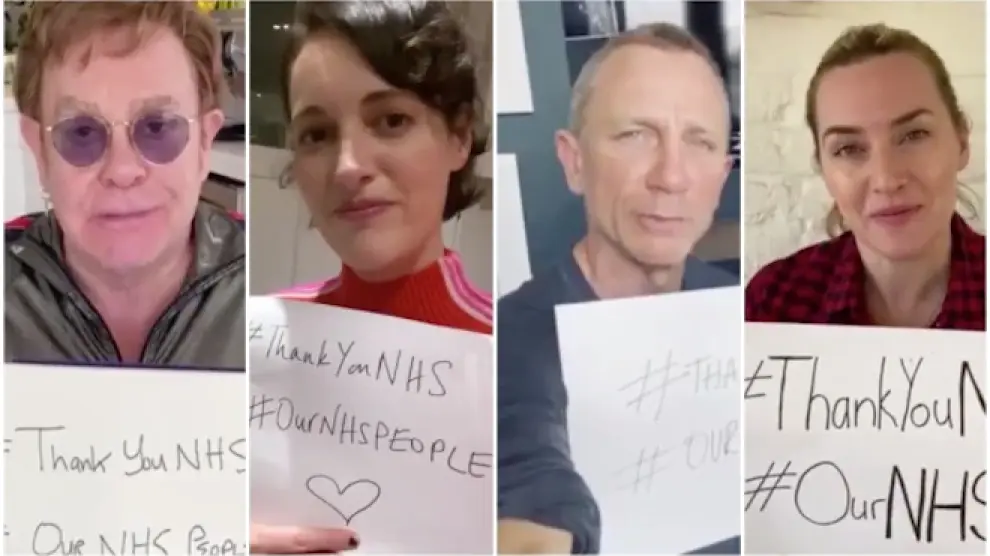 # Thank You NHS
# Our NHS People
#ThankYouNHS
#OurNHSPEOPLE
#THA
#OUR
#ThankYouN
#OurNHS